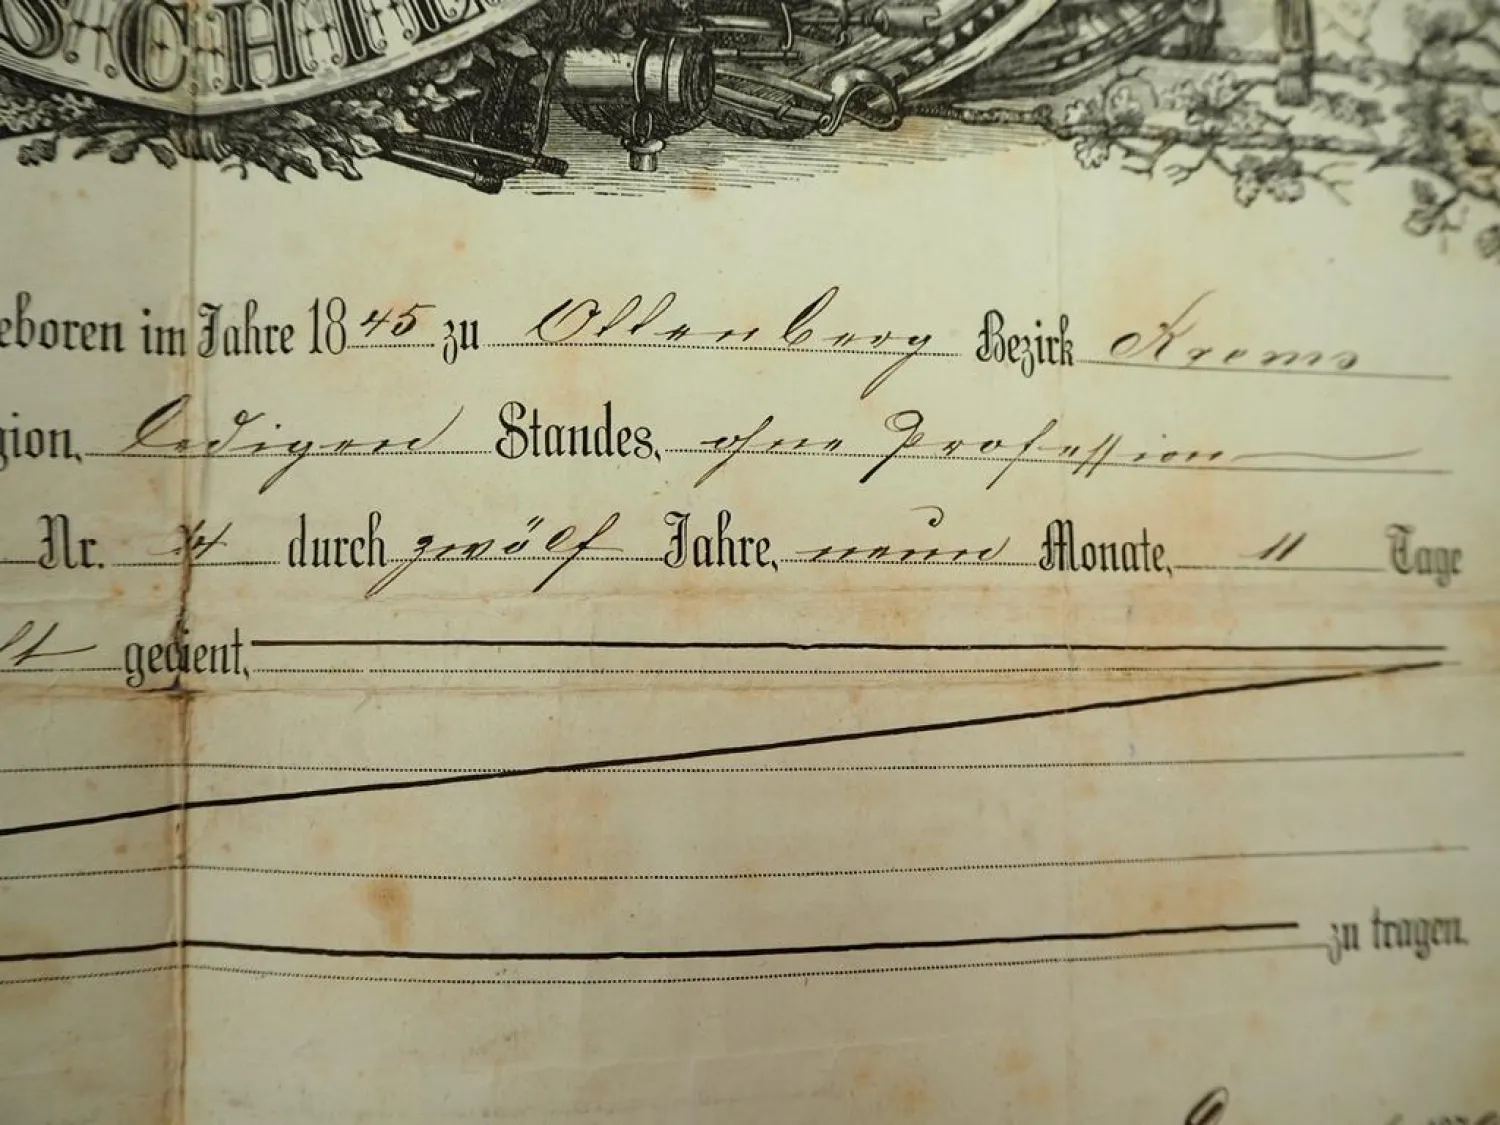 SCHI
eboren im Jahre 1845 zu Ottenberg Bezirk Krems
gion, ledigen Standes, ohne Profession
Nr. 14 durch zwölf Jahre, neun Monate, 11 Tage
lt gedient,
zu tragen.